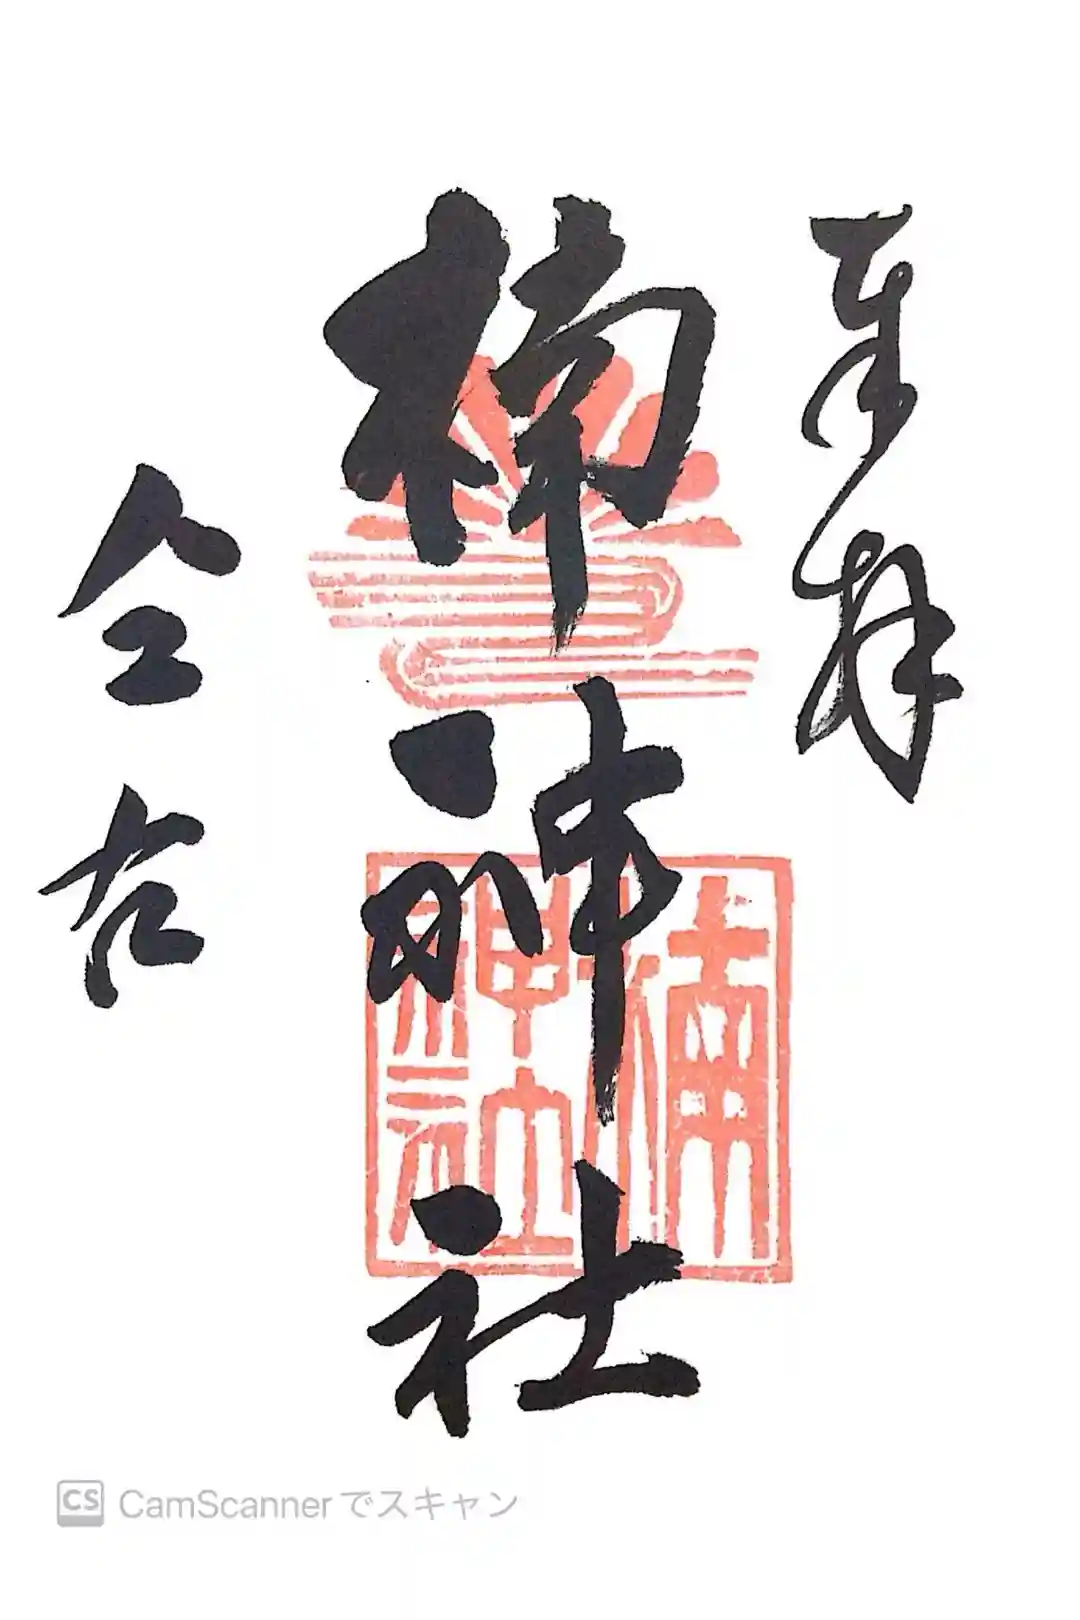 奉拝
楠神社
楠
神社
CamScannerでスキャン